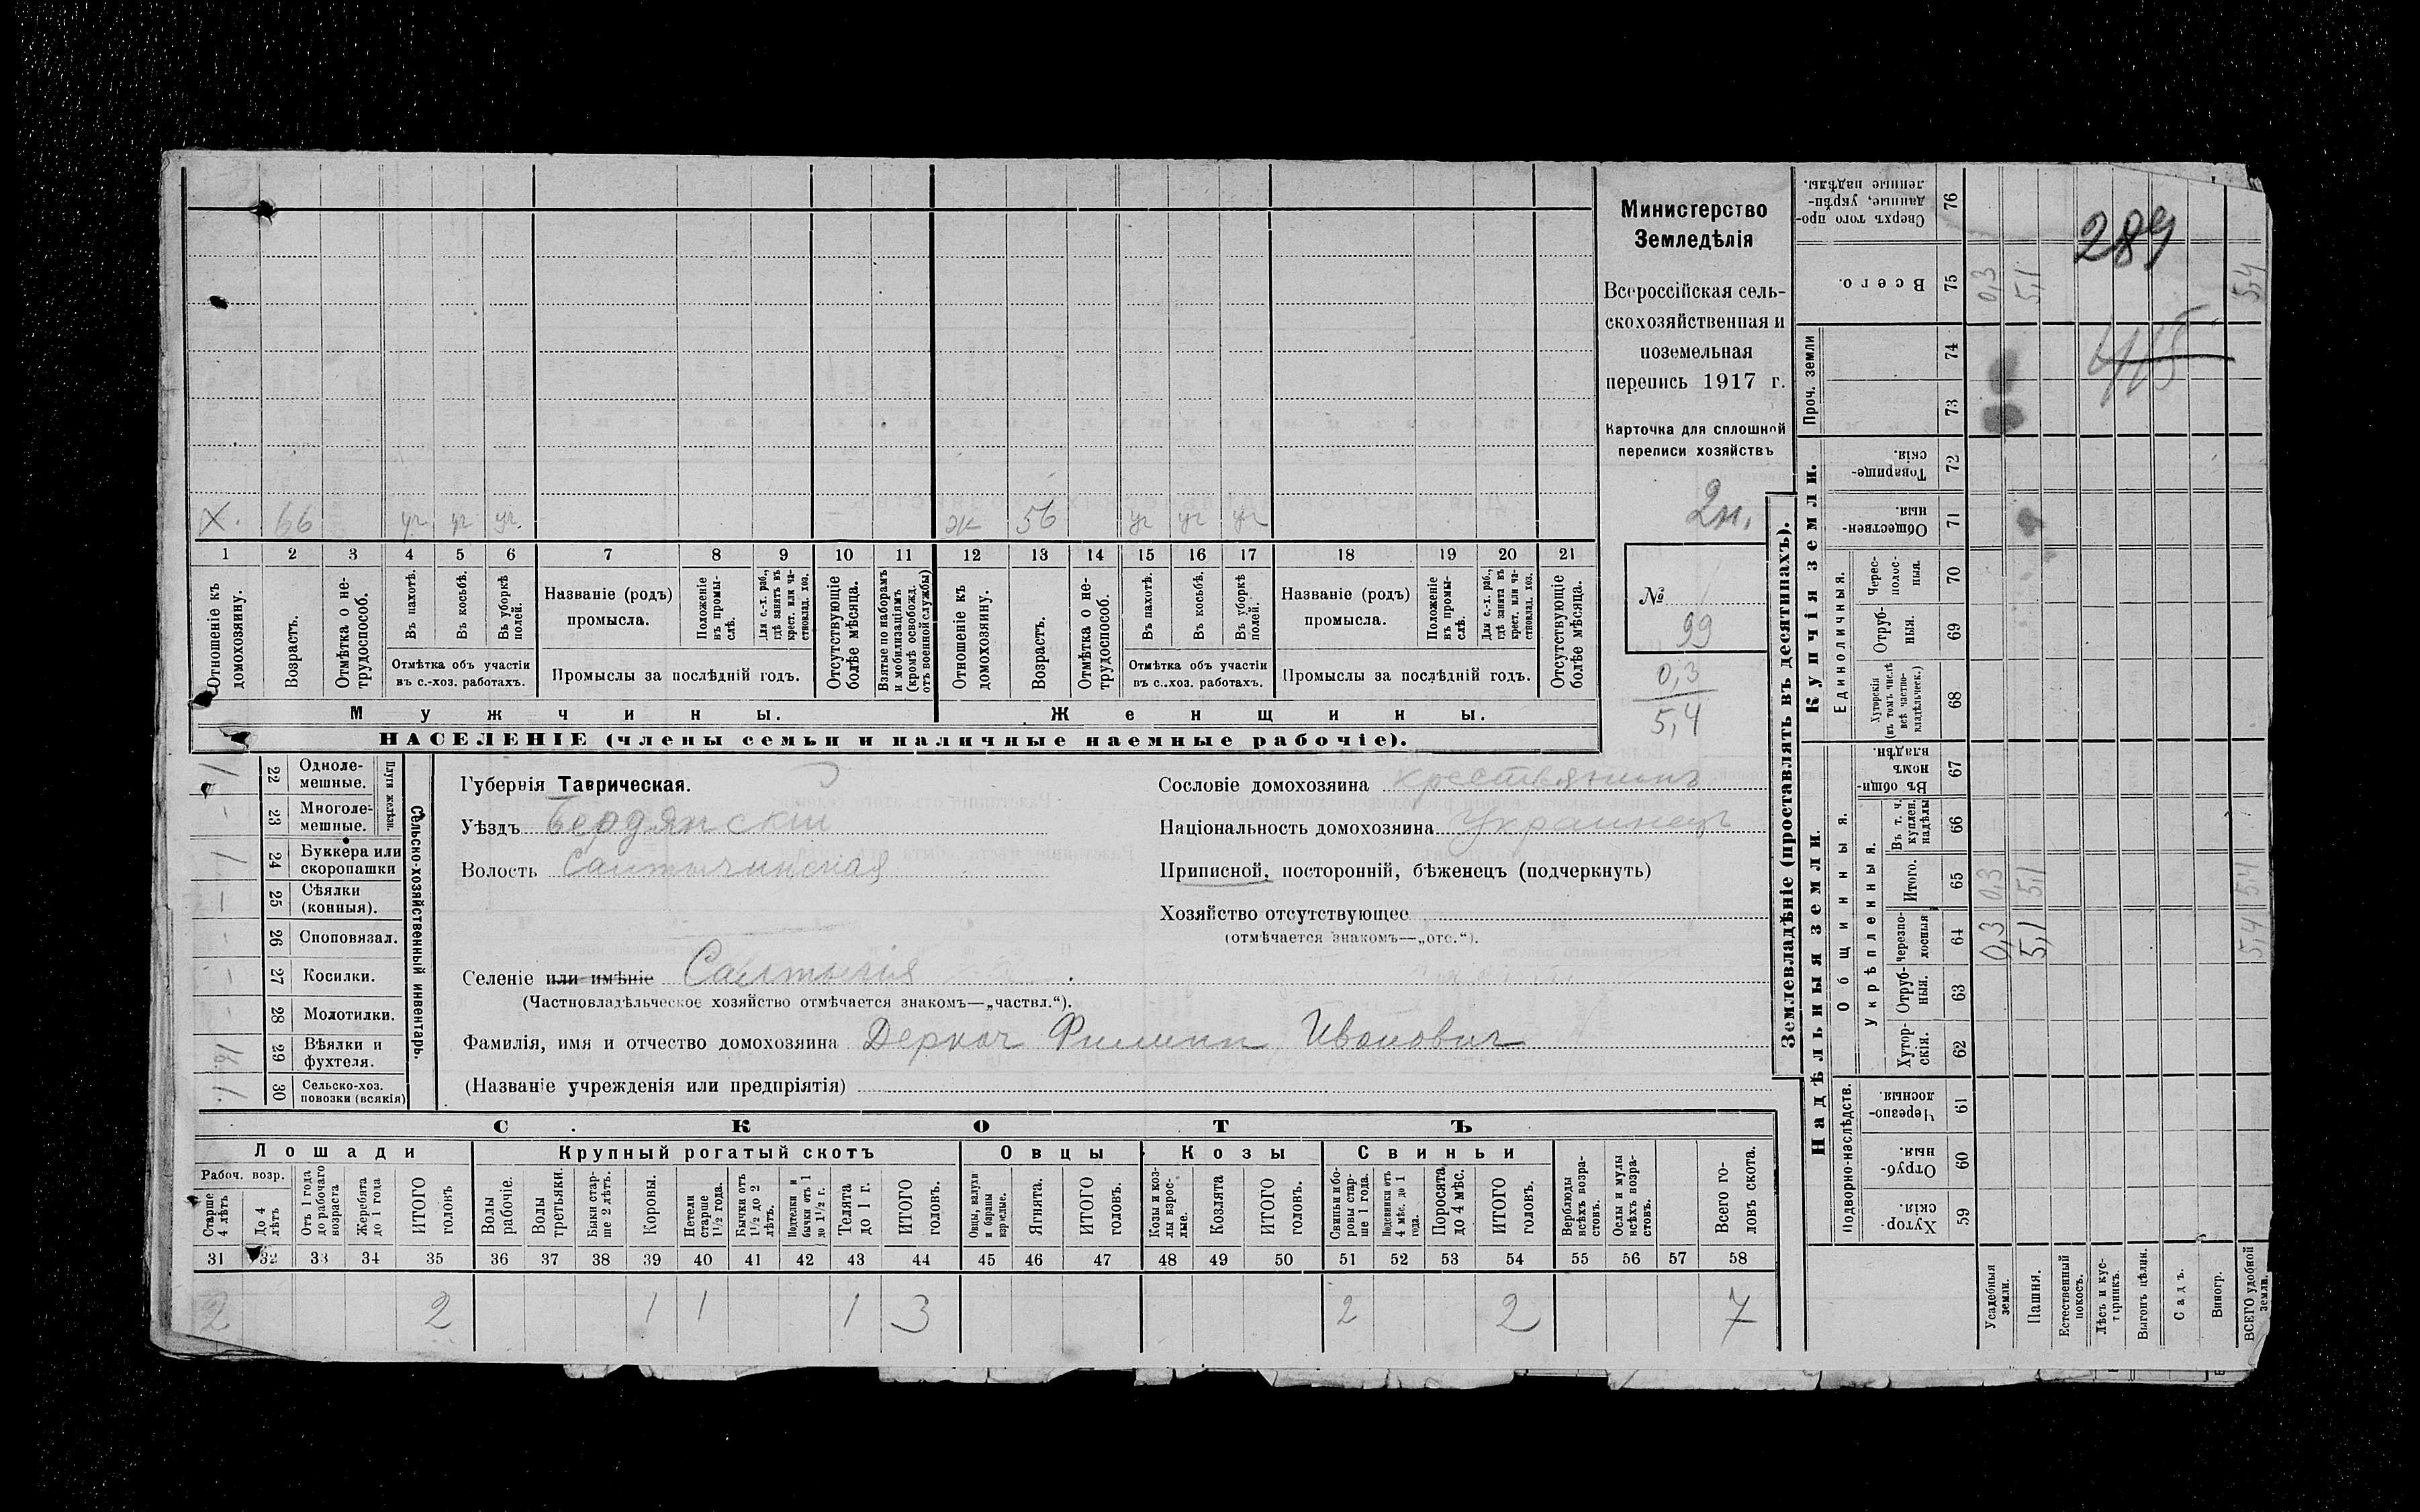 Х. 66 уч уч уч. Ж 56 уч уч уч
1 2 3 4 5 6 7 8 9 10 11 12 13 14 15 16 17 18 19 20 21
Отношеніе къ домохозяину.
Возрастъ.
Отмѣтка о не-трудоспособ.
Въ пахотѣ.
Въ косьбѣ.
Въ уборкѣ полей.
Отмѣтка объ участіи въ с.-хоз. работахъ.
Названіе (родъ) промысла.
Положеніе въ промы-слѣ.
Для с.-х. раб., гдѣ занятъ въ крест. или ча-стновлад. хоз.
Промыслы за послѣдній годъ.
Отсутствующіе болѣе мѣсяца.
Взятые по наборамъ и мобилизаціямъ (кромѣ освобожд. отъ военной службы)
Отношеніе къ домохозяину.
Возрастъ.
Отмѣтка о не-трудоспособ.
Въ пахотѣ.
Въ косьбѣ.
Въ уборкѣ полей.
Отмѣтка объ участіи въ с.-хоз. работахъ.
Названіе (родъ) промысла.
Положеніе въ промы-слѣ.
Для с.-х. раб., гдѣ занята въ крест. или ча-стновлад. хоз.
Промыслы за послѣдній годъ.
Отсутствующіе болѣе мѣсяца.
Мужчины.
Женщины.
НАСЕЛЕНІЕ (члены семьи и наличные наемные рабочіе).
Министерство
Земледѣлія
Всероссійская сель-
скохозяйственная и
поземельная
перепись 1917 г.
Карточка для сплошной
переписи хозяйствъ
2н.
№
99
0,3
5,4
Сельско-хозяйственный инвентарь.
Плуги желѣзн.
22 Одноле-мешные.
23 Многоле-мешные.
24 Буккера или скоропашки
25 Сѣялки (конныя).
26 Сноповязал.
27 Косилки.
28 Молотилки.
29 Вѣялки и фухтеля.
30 Сельско-хоз. повозки (всякія)
Губернія Таврическая.
Уѣздъ Бердянскій
Волость Салтычинская
Сословіе домохозяина крестьянинъ
Національность домохозяина Украинецъ
Приписной, посторонній, бѣженецъ (подчеркнуть)
Хозяйство отсутствующее
(отмѣчается знакомъ—„отс.“).
Селеніе или имѣніе Салтычія
(Частновладѣльческое хозяйство отмѣчается знакомъ—„частвл.“).
Фамилія, имя и отчество домохозяина Деркач Филипп Иванович
(Названіе учрежденія или предпріятія)
СКОТЪ
Лошади
Крупный рогатый скотъ
Овцы
Козы
Свиньи
Рабоч. возр.
Старше 4 лѣтъ
До 4 лѣтъ
Отъ 1 года до рабочаго возраста
Жеребята до 1 года
ИТОГО головъ
Волы рабочіе.
Волы третьяки.
Быки стар-ше 2 лѣтъ.
Коровы.
Нетели старше 1½ года.
Бычки отъ 1½ до 2 лѣтъ.
Подтелки и бычки отъ 1 до 1½ г.
Телята до 1 г.
ИТОГО головъ.
Овцы, валухи и бараны взрослые.
Ягнята.
ИТОГО головъ.
Козы и коз-лы взрос-лые.
Козлята
ИТОГО головъ.
Свиньи и бо-ровы стар-ше 1 года.
Подсвинки отъ 4 мѣс. до 1 года.
Поросята до 4 мѣс.
ИТОГО головъ.
Верблюды всѣхъ возра-стовъ.
Ослы и мулы всѣхъ возра-стовъ.
Всего го-ловъ скота.
31 32 33 34 35 36 37 38 39 40 41 42 43 44 45 46 47 48 49 50 51 52 53 54 55 56 57 58
2 2 1 1 1 3 2 2 7
Землевладѣніе (проставлять въ десятинахъ).
Надѣльныя земли.
Купчія земли.
Проч. земли
Подворно-наслѣдств.
Общинныя.
Укрѣпленныя.
Единоличныя.
Сверхъ того про-данные, укрѣп-ленные надѣлы. 76
Всего. 75
74
73
Товарище-скія. 72
Обществен-ныя. 71
Черес-полос-ныя. 70
Отруб-ныя. 69
Хуторскія (въ томъ числѣ всѣ частно-владѣльческ.) 68
Въ общин-номъ владѣн. 67
Въ т. ч. куплен. надѣлы 66
Итого. 65
Черезпо-лосныя 64
Отруб-ныя. 63
Хутор-скія. 62
Черезпо-лосныя. 61
Отруб-ныя. 60
Хутор-скія. 59
Усадебныя земли.
Пашня.
Естественный покосъ.
Лѣсъ и кус-тарникъ.
Выгонъ цѣлин.
Садъ.
Виногр.
ВСЕГО удобной земли.
0,3 5,1 5,4
0,3 5,1 5,4
0,3 5,1 5,4
289
415